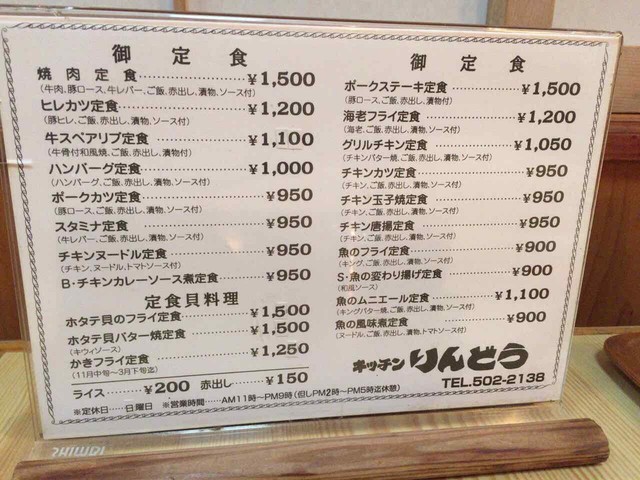 御定食
焼肉定食 ¥1,500
(牛肉、豚ロース、牛レバー、ご飯、赤出し、漬物、ソース付)
ヒレカツ定食 ¥1,200
(豚ヒレ、ご飯、赤出し、漬物、ソース付)
牛スペアリブ定食 ¥1,100
(牛骨付和風焼、ご飯、赤出し、漬物付)
ハンバーグ定食 ¥1,000
(ハンバーグ、ご飯、赤出し、漬物、ソース付)
ポークカツ定食 ¥950
(豚ロース、ご飯、赤出し、漬物、ソース付)
スタミナ定食 ¥950
(牛レバー、ご飯、赤出し、漬物、ソース付)
チキンヌードル定食 ¥950
(チキン、ヌードル、トマトソース付)
B・チキンカレーソース煮定食 ¥950
定食貝料理
ホタテ貝のフライ定食 ¥1,500
ホタテ貝バター焼定食 ¥1,500
(キウィソース)
かきフライ定食 ¥1,250
(11月中旬〜3月下旬迄)
ライス ¥200 赤出し ¥150
※定休日……日曜日 ※営業時間……AM11時〜PM9時(但しPM2時〜PM5時迄休憩)
御定食
ポークステーキ定食 ¥1,500
(豚ロース、ご飯、赤出し、漬物、ソース付)
海老フライ定食 ¥1,200
(海老、ご飯、赤出し、漬物、ソース付)
グリルチキン定食 ¥1,050
(チキンバター焼、ご飯、赤出し、漬物、ソース付)
チキンカツ定食 ¥950
(チキン、ご飯、赤出し、漬物、ソース付)
チキン玉子焼定食 ¥950
(チキン、ご飯、赤出し、漬物、ソース付)
チキン唐揚定食 ¥950
(チキン、ご飯、赤出し、漬物、ソース付)
魚のフライ定食 ¥900
(キング、ご飯、赤出し、漬物、ソース付)
S・魚の変わり揚げ定食 ¥900
(和風ソース)
魚のムニエール定食 ¥1,100
(キングバター焼、ご飯、赤出し、漬物、ソース付)
魚の風味煮定食 ¥900
(ヌードル、ご飯、赤出し、漬物、トマトソース付)
キッチンりんどう
TEL.502-2138